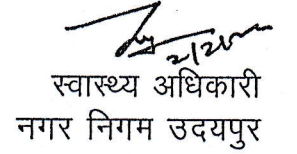 स्वास्थ्य अधिकारी
नगर निगम उदयपुर